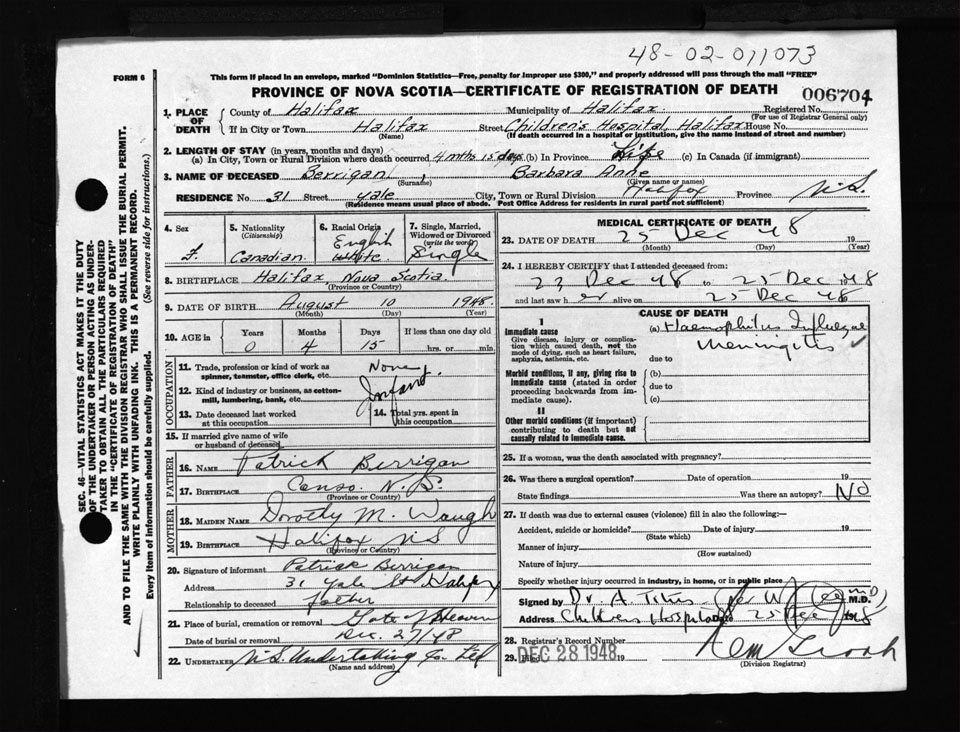 48-02-011073
FORM 6
This form if placed in an envelope, marked "Dominion Statistics—Free, penalty for improper use $300," and properly addressed will pass through the mail "FREE"
PROVINCE OF NOVA SCOTIA—CERTIFICATE OF REGISTRATION OF DEATH
006704
1. PLACE OF DEATH
County of Halifax Municipality of Halifax Registered No.
(For use of Registrar General only)
If in City or Town Halifax Street Children's Hospital, Halifax House No.
(Name) (If death occurred in a hospital or institution, give the name instead of street and number)
2. LENGTH OF STAY (in years, months and days)
(a) In City, Town or Rural Division where death occurred 4 mths 15 days (b) In Province Life (c) In Canada (if immigrant)
3. NAME OF DECEASED Berrigan, Barbara Anne
(Surname) (Given name or names)
RESIDENCE No. 31 Street Yale City, Town or Rural Division Halifax Province N.S.
(Residence means usual place of abode. Post Office Address for residents in rural parts not sufficient)
4. Sex
F.
5. Nationality
(Citizenship)
Canadian
6. Racial Origin
English
White
7. Single, Married, Widowed or Divorced
(write the word)
Single
8. BIRTHPLACE Halifax Nova Scotia
(Province or Country)
9. DATE OF BIRTH August 10 1948
(Month) (Day) (Year)
10. AGE in
Years Months Days If less than one day old
0 4 15 hrs. or min.
OCCUPATION
11. Trade, profession or kind of work as spinner, teamster, office clerk, etc. None
12. Kind of industry or business, as cotton-mill, lumbering, bank, etc. Infant
13. Date deceased last worked at this occupation
14. Total yrs. spent in this occupation
15. If married give name of wife or husband of deceased
FATHER
16. NAME Patrick Berrigan
17. BIRTHPLACE Canso N.S.
(Province or Country)
MOTHER
18. MAIDEN NAME Dorothy M. Waugh
19. BIRTHPLACE Halifax NS
(Province or Country)
20. Signature of informant Patrick Berrigan
Address 31 Yale St Halifax
Relationship to deceased father
21. Place of burial, cremation or removal Gate of Heaven
Date of burial or removal Dec. 27/48
22. UNDERTAKER N.S. Undertaking Co Ltd
(Name and address)
MEDICAL CERTIFICATE OF DEATH
23. DATE OF DEATH 25 Dec 48 19
(Month) (Day) (Year)
24. I HEREBY CERTIFY that I attended deceased from:
23 Dec 48 to 25 Dec 1948
and last saw her alive on 25 Dec 48
CAUSE OF DEATH
I
Immediate cause
Give disease, injury or complication which caused death, not the mode of dying, such as heart failure, asphyxia, asthenia, etc.
(a) Haemophilus Influenzae
Meningitis
due to
Morbid conditions, if any, giving rise to immediate cause (stated in order proceeding backwards from immediate cause).
(b)
due to
(c)
II
Other morbid conditions (if important) contributing to death but not causally related to immediate cause.
25. If a woman, was the death associated with pregnancy?
26. Was there a surgical operation? Date of operation 19
State findings Was there an autopsy? No
27. If death was due to external causes (violence) fill in also the following:—
Accident, suicide or homicide? Date of injury 19
(State which)
Manner of injury
(How sustained)
Nature of injury
Specify whether injury occurred in industry, in home, or in public place
Signed by Dr. A M.D.
Address Childrens Hospital Date 25 Dec 1948
28. Registrar's Record Number
29. Filed DEC 28 1948 19
(Division Registrar)
SEC. 46—VITAL STATISTICS ACT MAKES IT THE DUTY
OF THE UNDERTAKER OR PERSON ACTING AS UNDER-
TAKER TO OBTAIN ALL THE PARTICULARS REQUIRED
IN THE "CERTIFICATE OF REGISTRATION OF DEATH"
AND TO FILE THE SAME WITH THE DIVISION REGISTRAR WHO SHALL ISSUE THE BURIAL PERMIT.
WRITE PLAINLY WITH UNFADING INK. THIS IS A PERMANENT RECORD.
Every item of information should be carefully supplied. (See reverse side for instructions.)